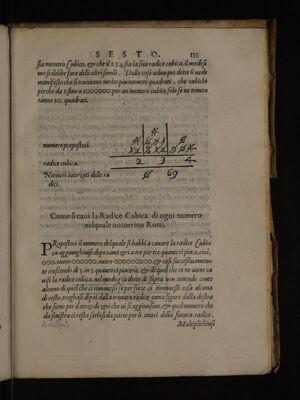 SESTO. 135
sia numero Cubico, & che il 234. sia la sua radice cubica, il medesi
mo si debbe fare delli altri simili. Dalle cose adunque dette si uede
manifesto che si truouano molti piu numeri quadrati, che cubichi
perche da 1. sino a 1000000. per un numero cubico solo se ne truoua
ranno 10. quadrati.
numeri propostoci.
radice cubica. 2 3 4
Numeri interzati delle ra 69
dici.
Come si caui la Radice Cubica di ogni numero
nelquale occorrino Rotti.
PRopostoci il numero del quale si habbi a cauare la radice Cubi
ca aggiunghinsi dopo tanti zeri a tre per tre quanti ci piace, cioè,
000. uero 000000. uero 000000000. & cosi successiuamen
te crescendo di 3. in 3. quanto ci piacerà. & di quel che ce ne uiene ca
uisi la radice cubica,
alcuno di quel che ci rimanessi se per sorte ci rimanessi cosa alcuna
di resto, taglisi dipoi della trouata radice tante figure dalla destra
che sieno per il terzo de zeri che ui si aggiunsono. & quel numero che
da sinistra ci resta serbisi da parte per li interi della futura radice.
Multiplichinsi